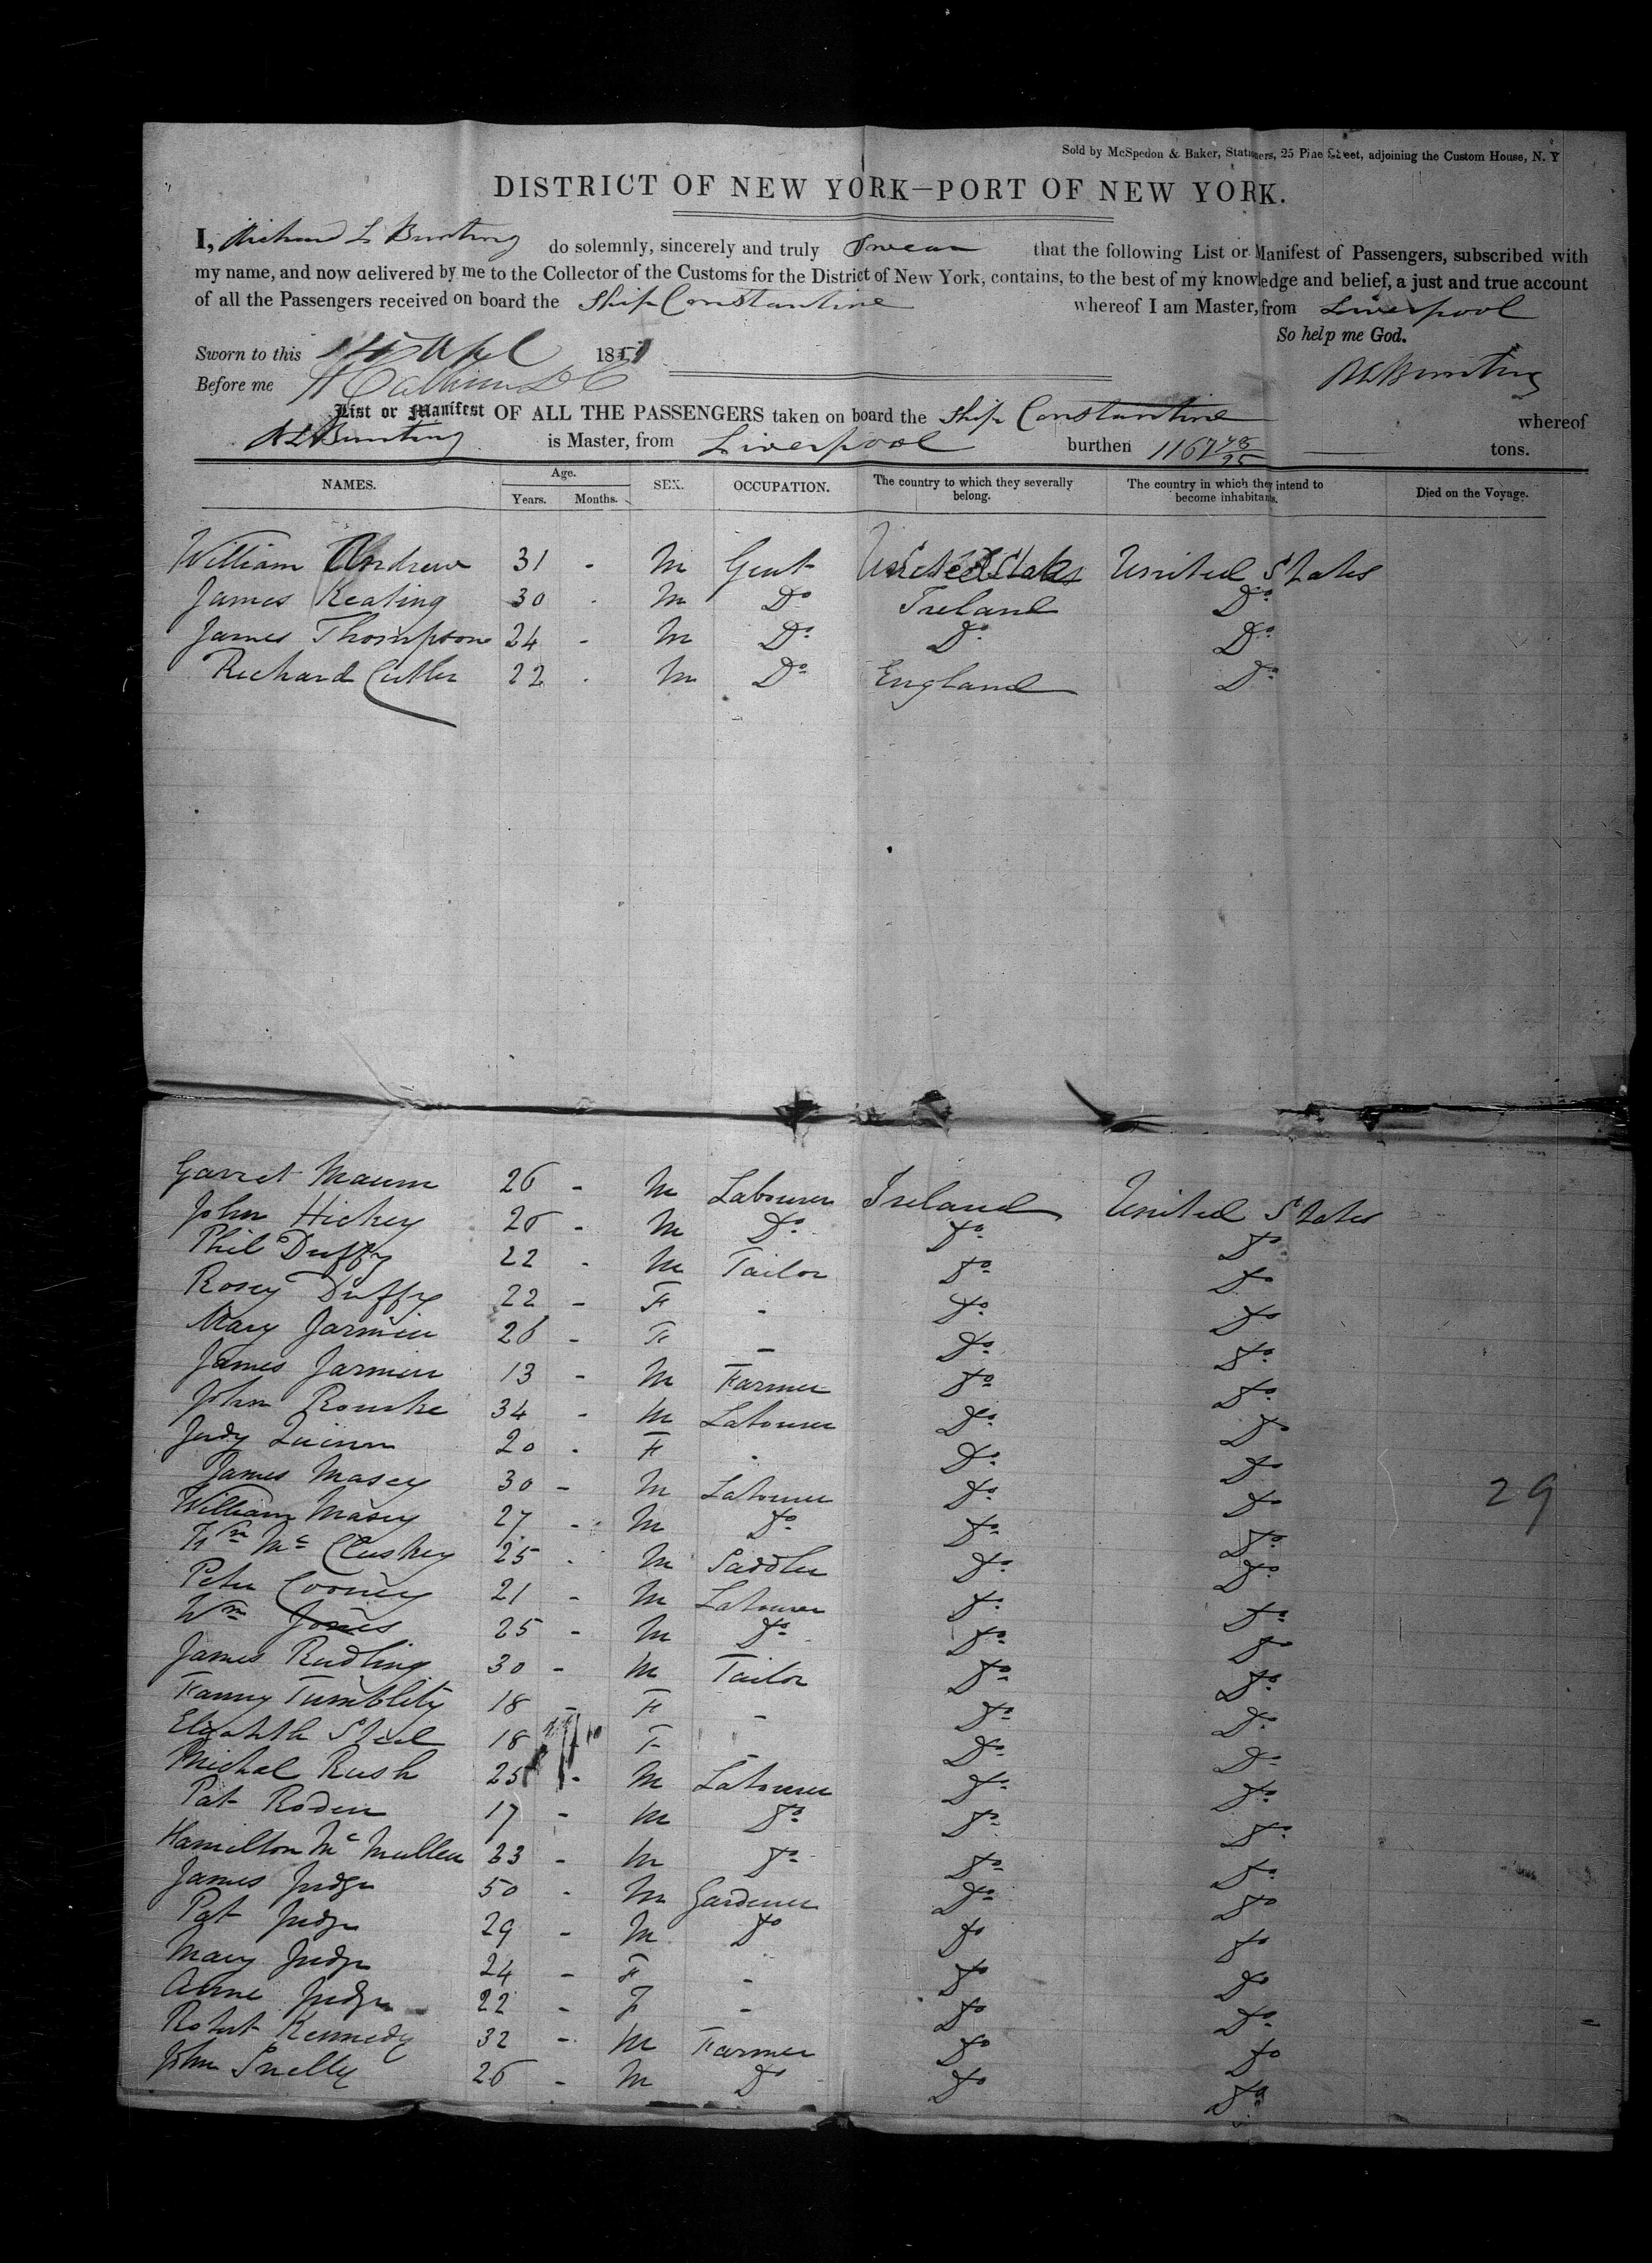 Sold by McSpedon & Baker, Stationers, 25 Pine Street, adjoining the Custom House, N. Y
DISTRICT OF NEW YORK—PORT OF NEW YORK.
I, Richard L Bunting do solemnly, sincerely and truly Swear that the following List or Manifest of Passengers, subscribed with
my name, and now delivered by me to the Collector of the Customs for the District of New York, contains, to the best of my knowledge and belief, a just and true account
of all the Passengers received on board the Ship Constantine whereof I am Master, from Liverpool
So help me God.
Sworn to this 14 Apl 1851
Before me R L Bunting
List or Manifest OF ALL THE PASSENGERS taken on board the Ship Constantine whereof
R L Bunting is Master, from Liverpool burthen 1167 tons.
NAMES. Age. Years. Months. SEX. OCCUPATION. The country to which they severally belong. The country in which they intend to become inhabitants. Died on the Voyage.
William Andrew 31 - M Gent United States United States
James Keating 30 - M Do Ireland Do
James Thompson 24 - M Do Do Do
Richard Cutler 22 - M Do England Do
Garret Maum 26 - M Labourer Ireland United States
John Hickey 26 - M Do Do Do
Phil Duffy 22 - M Tailor Do Do
Rosey Duffy 22 - F - Do Do
Mary Jarmin 26 - F - Do Do
James Jarmin 13 - M Farmer Do Do
John Rourke 34 - M Labourer Do Do
Judy Quinn 20 - F - Do Do
James Masey 30 - M Labourer Do Do 29
William Masey 27 - M Do Do Do
Wm Mc Cluskey 25 - M Saddler Do Do
Peter Cooney 21 - M Labourer Do Do
Wm Jones 25 - M Do Do Do
James Rudling 30 - M Tailor Do Do
Fanny Tumblety 18 - F - Do Do
Elizabth Steel 18 F - Do Do
Michal Rush 25 - M Labourer Do Do
Pat Roden 17 - M Do Do Do
Hamilton Mc Mullen 23 - M Do Do Do
James Judge 50 - M Gardener Do Do
Pat Judge 29 - M Do Do Do
Mary Judge 24 - F - Do Do
Anne Judge 22 - F - Do Do
Robert Kennedy 32 - M Farmer Do Do
John Snelly 26 - M Do Do Do